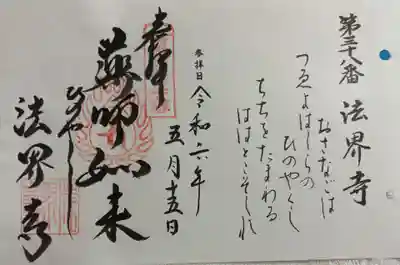 第三十八番 法界寺
おさなごは
つえよはしらの
ひのやくし
ちちをたまわる
ははとこそしれ
参拝日 令和六年
五月十五日
奉拝
薬師如来
ひのやくし
法界寺